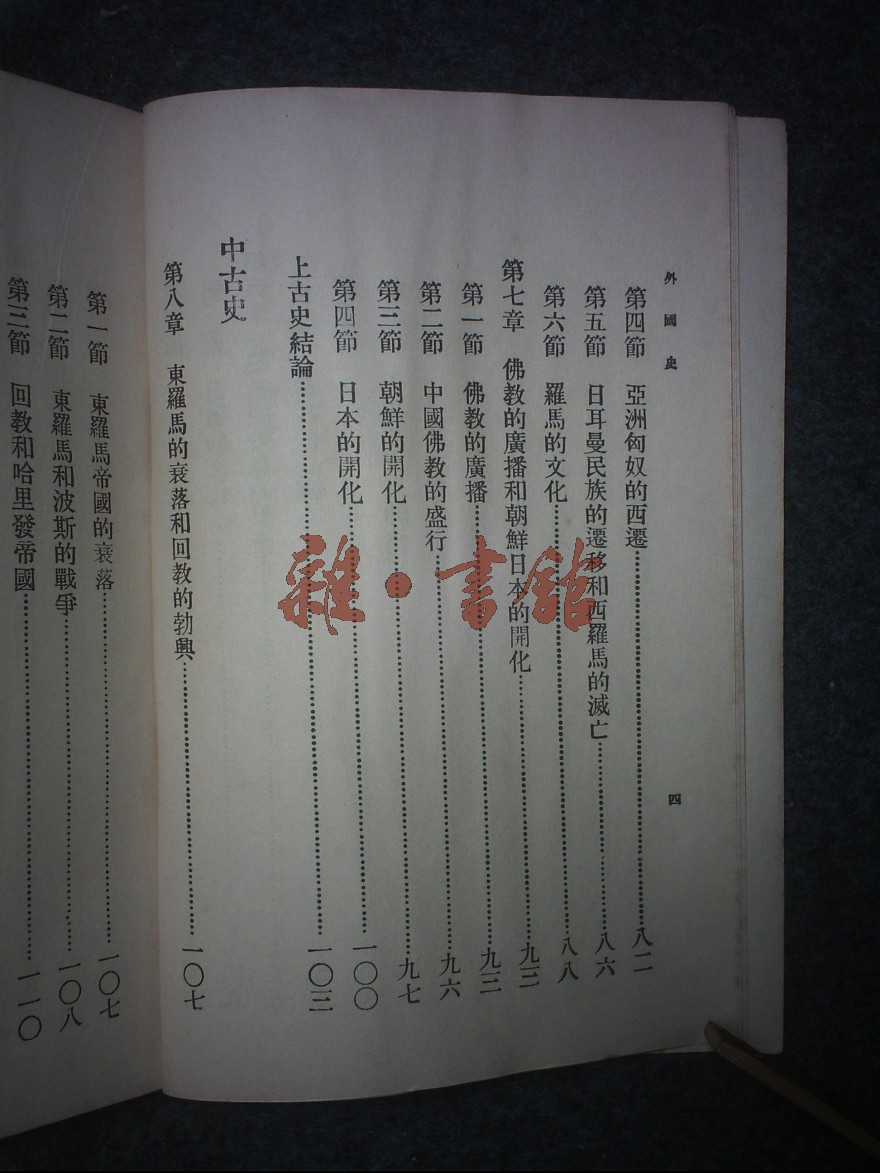 外國史
四
第四節 亞洲匈奴的西遷……八二
第五節 日耳曼民族的遷移和西羅馬的滅亡……八六
第六節 羅馬的文化……八八
第七章 佛教的廣播和朝鮮日本的開化……九三
第一節 佛教的廣播……九三
第二節 中國佛教的盛行……九六
第三節 朝鮮的開化……九七
第四節 日本的開化……一〇〇
上古史結論……一〇三
中古史
第八章 東羅馬的衰落和回教的勃興……一〇七
第一節 東羅馬帝國的衰落……一〇七
第二節 東羅馬和波斯的戰爭……一〇八
第三節 回教和哈里發帝國……一一〇
雜·書館